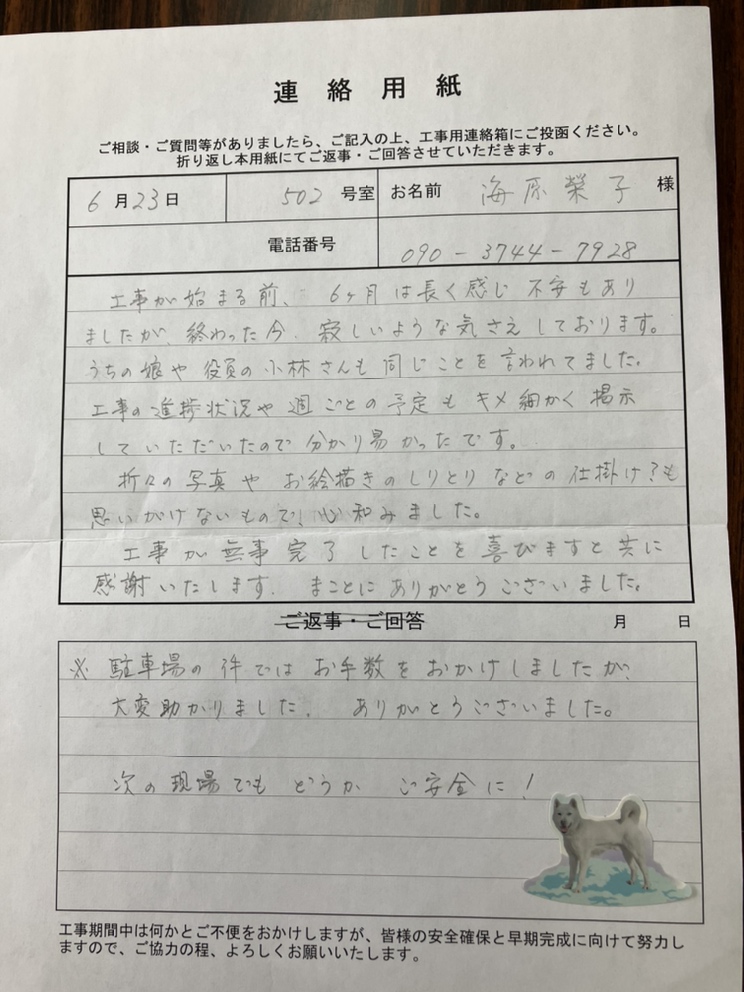 連絡用紙
ご相談・ご質問等がありましたら、ご記入の上、工事用連絡箱にご投函ください。
折り返し本用紙にてご返事・ご回答させていただきます。
6月23日 502号室 お名前 海原榮子 様
電話番号 090-3744-7928
工事が始まる前、6ヶ月は長く感じ不安もあり
ましたが、終わった今、寂しいような気さえしております。
うちの娘や役員の小林さんも同じことを言われてました。
工事の進捗状況や週ごとの予定もキメ細かく掲示
していただいたので分かり易かったです。
折々の写真やお絵描きのしりとりなどの仕掛け?も
思いがけないもので、心和みました。
工事が無事完了したことを喜びますと共に
感謝いたします。まことにありがとうございました。
ご返事・ご回答 月 日
※駐車場の件ではお手数をおかけしましたが、
大変助かりました。ありがとうございました。
次の現場でもどうかご安全に!
工事期間中は何かとご不便をおかけしますが、皆様の安全確保と早期完成に向けて努力し
ますので、ご協力の程、よろしくお願いいたします。